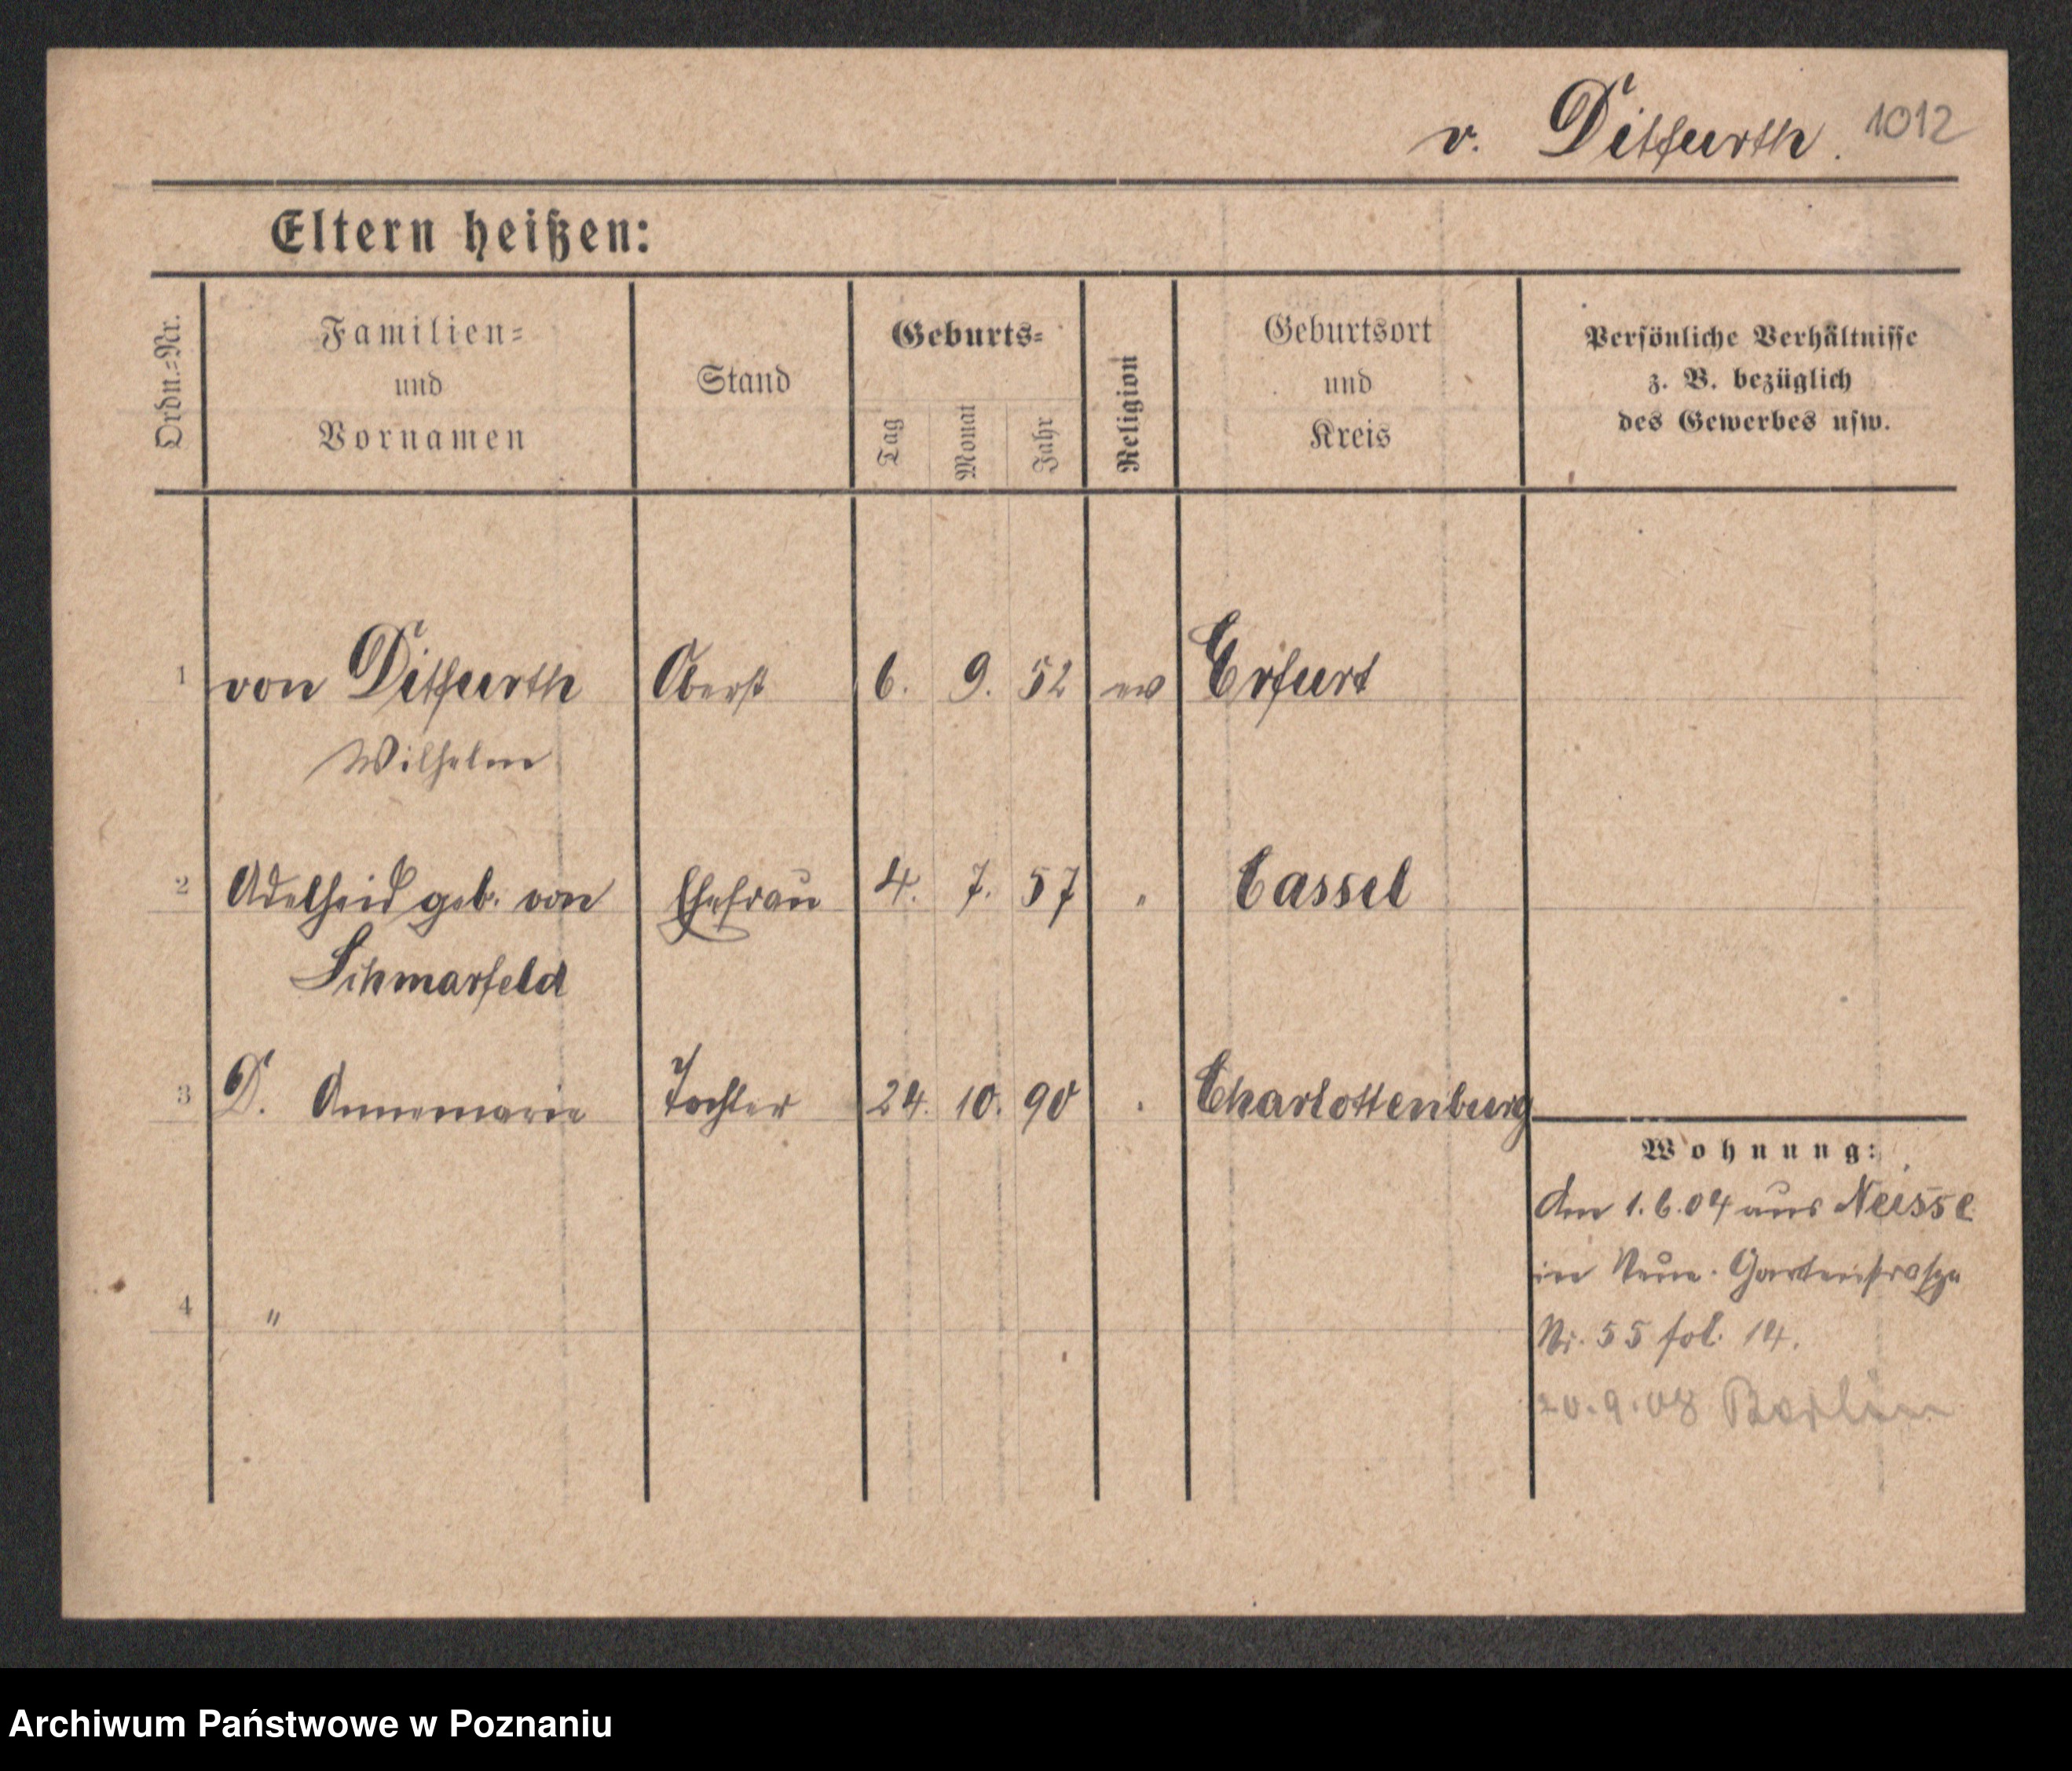 v. Ditfurth. 1012
Eltern heißen:
Ordn.=Nr.
Familien=
und
Vornamen
Stand
Geburts=
Tag
Monat
Jahr
Religion
Geburtsort
und
Kreis
Persönliche Verhältnisse
z. B. bezüglich
des Gewerbes usw.
1 von Ditfurth Oberst 6. 9. 52 ev Erfurt
Wilhelm
2 Adelheid geb. von Ehefrau 4. 7. 57 " Cassel
Schmarfeld
3 D. Annemarie Tochter 24. 10. 90 " Charlottenburg
Wohnung:
1.6.04 aus Neisse
in Gartenstraße
Nr. 55 fol. 14.
4 "
20.9.08 Berlin
Archiwum Państwowe w Poznaniu